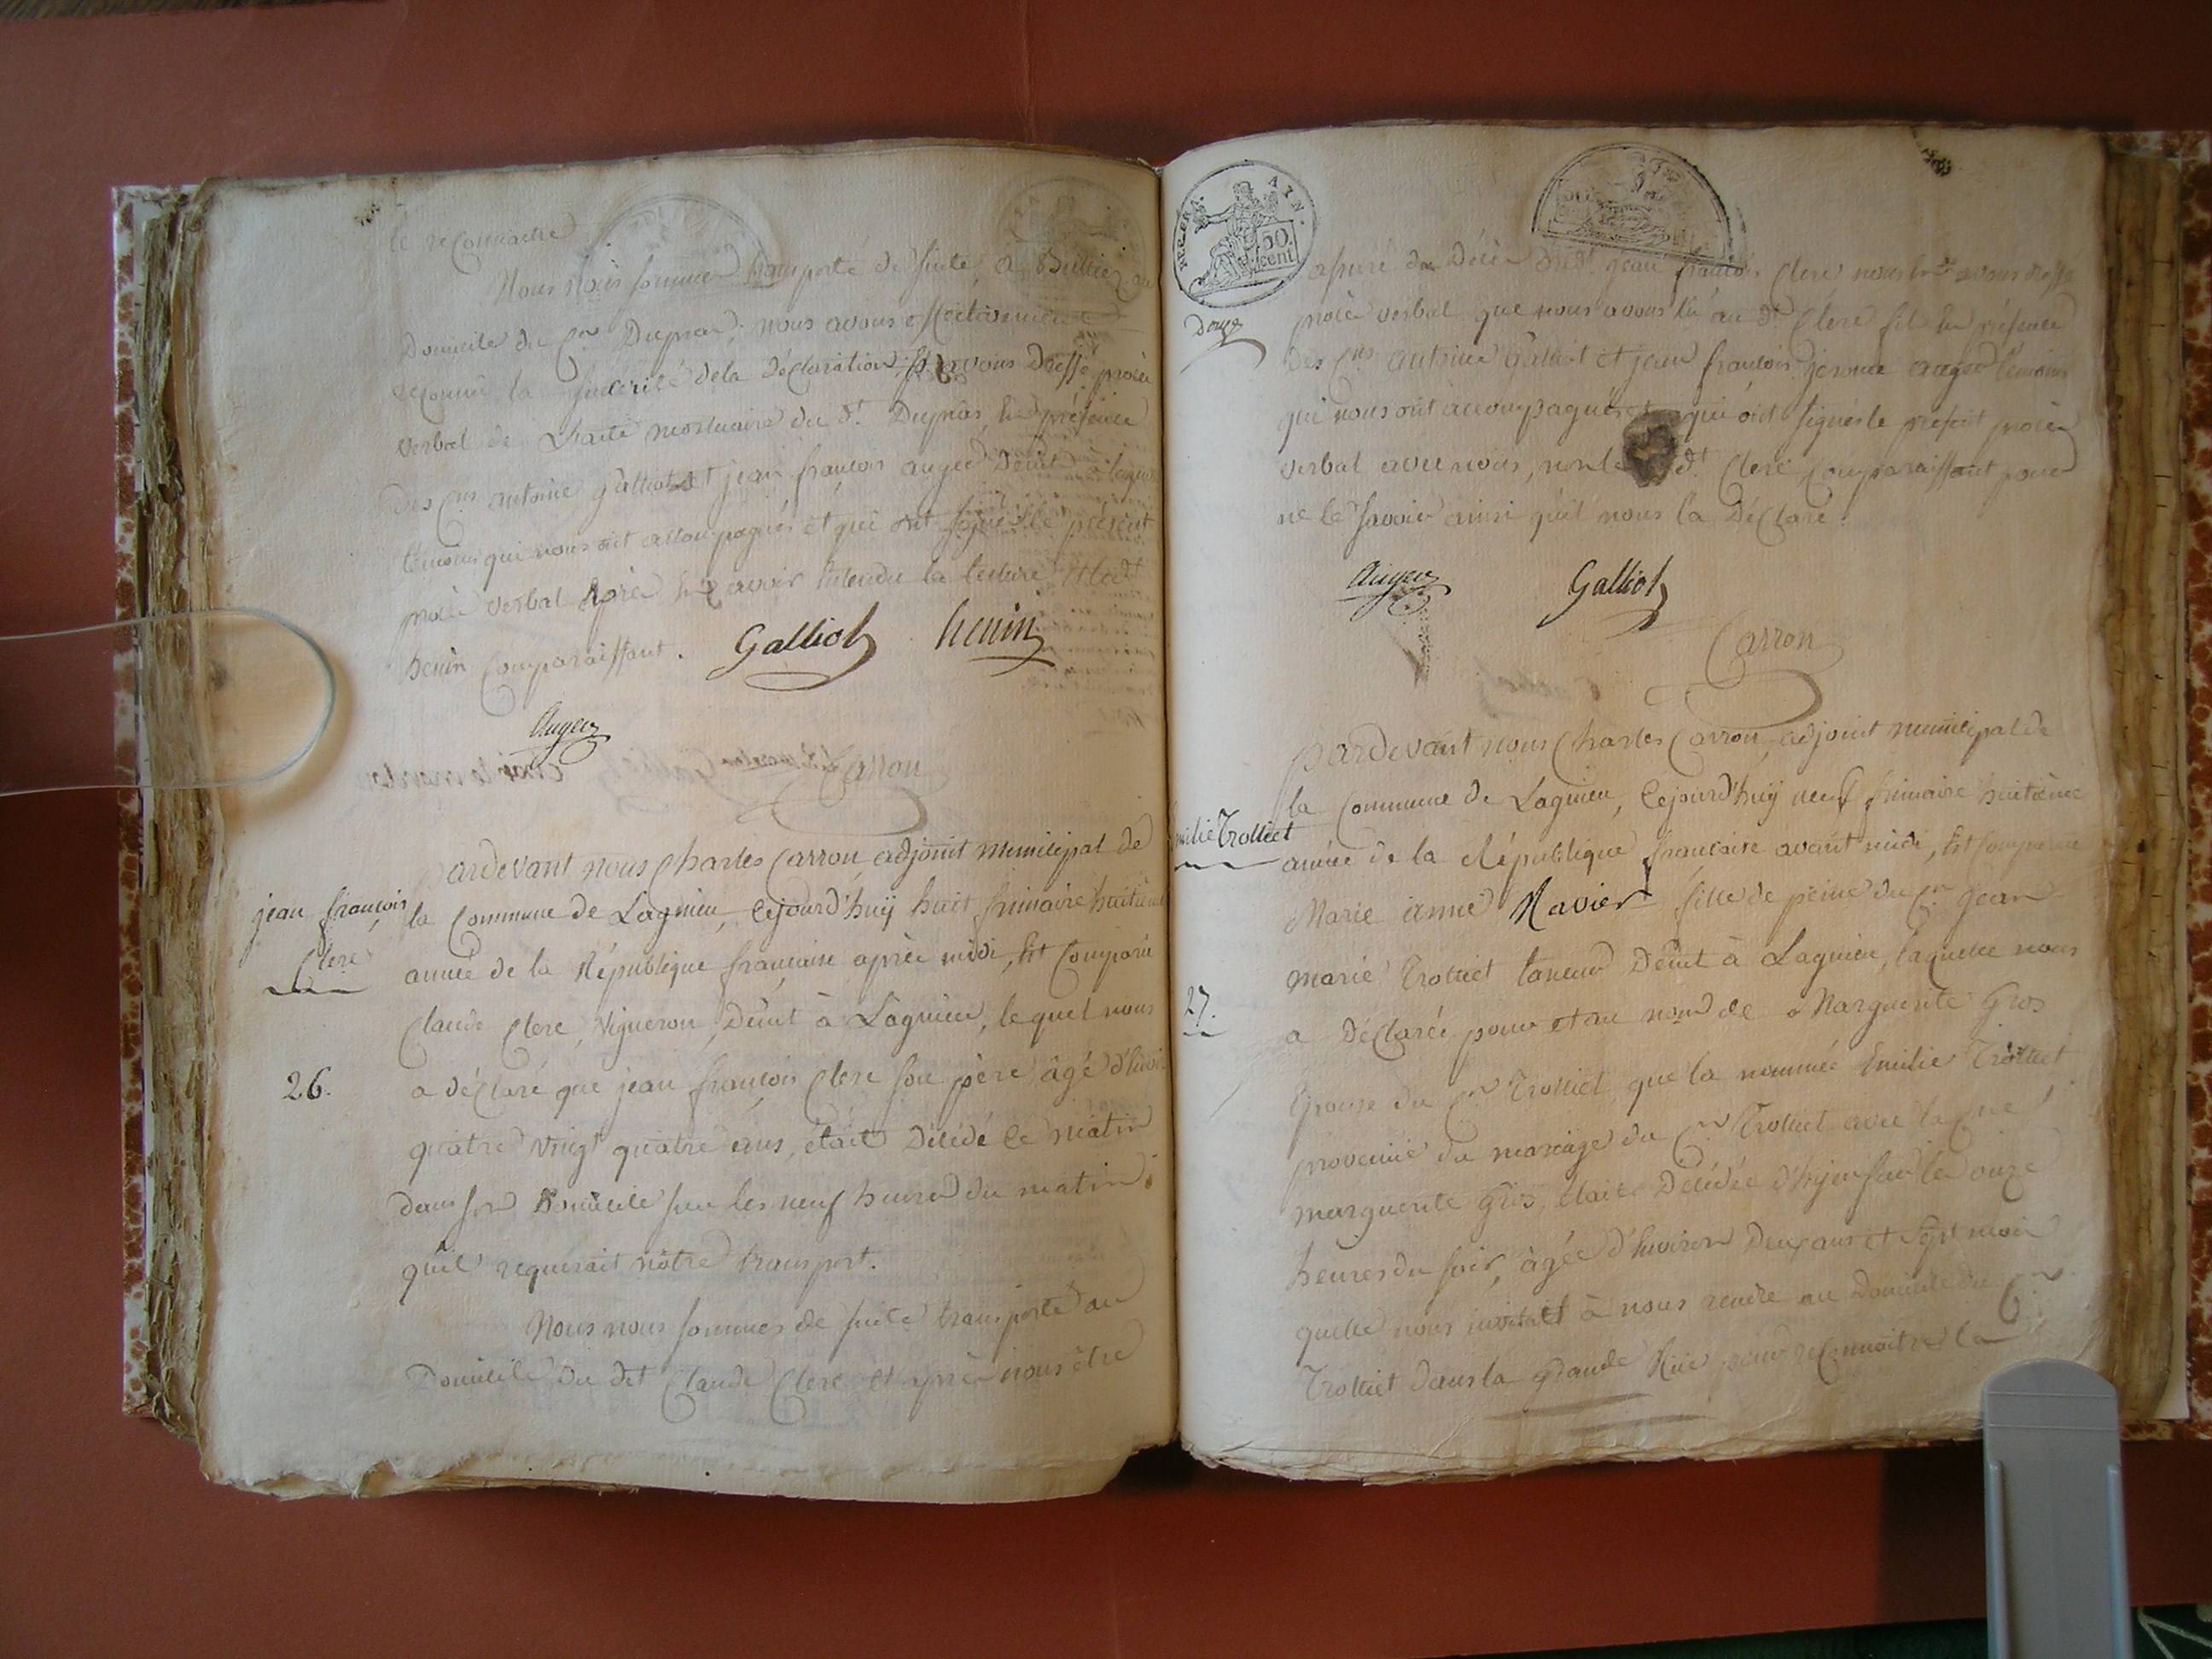 le reconnaitre
Nous nous sommes transporte de suite a
Domicile du Cen Dupras, nous avons effectivement
reconnu la sincérité de la déclaration, et avons dressé procès
verbal de L'acte mortuaire du dt. Dupras, En présence
des Cens antoine galliot et jean françois auger Demt. à lagnieu
témoins qui nous ont accompagnés et qui ont signés le présent
procès verbal Après En avoir Entendu la lecture Et ledt.
henin Comparaissant. Galliot henin
Auger
Carron
Pardevant nous Charles Carron adjoint municipal de
jean françois
Clerc
la Commune de Lagnieu, Cejourd'huÿ huit frimaire huitième
année de la République française après midi, Est Comparu
Claude Clerc, Vigneron, Demt à Lagnieu, lequel nous
26.
a déclaré que jean françois Clerc son père âgé d'Envi
quatre vingt quatre ans, était Décédé Ce matin
dans son Domicile sur les neuf heures du matin.
qu'il requerait nôtre transport.
Nous nous sommes de suite transporté au
Domicile du dit Claude Clerc et après nous être
REP. FRA. AYN.
50 cent
assuré du Décès dudt. jean françois Clerc nous avons dressé
Douze
procès verbal que nous avons lu au dt Clerc fils En présence
des Cens antoine Galliot et jean françois jerome auger témoins
qui nous ont accompagnés et qui ont signés le présent procès
verbal avec nous, non le dt. Clerc Comparaissant pour
ne le savoir ainsi qu'il nous la Déclaré.
Auger Galliot
Carron
Pardevant nous Charles Carron, adjoint municipal de
la Commune de Lagnieu, Cejourd'huÿ neuf frimaire huitième
milie Trolliet
année de la République française avant midi, Est Comparue
Marie anne Ravier fille de peine du Cen Jean
marie Trolliet taneur Demt à Lagnieu, laquelle nous
27.
a Déclarée pour et au nom de Marguerite Gros
Epouse du Cen Trolliet que la nommée Emilie Trolliet
provenüe du mariage du Cen Trolliet avec la Cne
marguerite Gros, était Décédée d'hyer sur les onze
heures du soir, âgée d'Environ Deux ans et sept mois
quelle nous invitait à nous rendre au Domicile du Cen
Trolliet dans la grande Rüe pour reconnaitre la